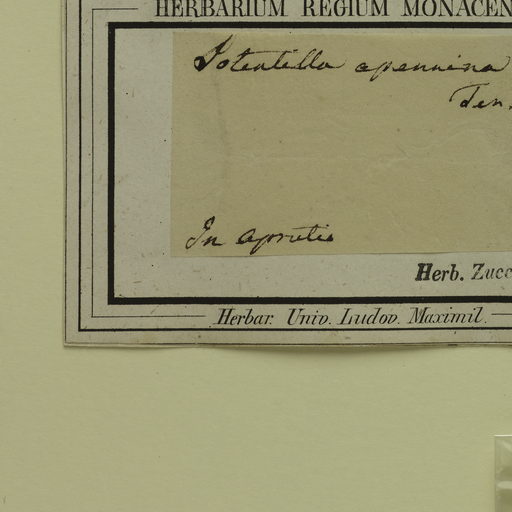 HERBARIUM REGIUM MONACEN
Potentilla apennina
Ten.
In Aprutis
Herb. Zucc
Herbar. Univ. Ludov. Maximil.